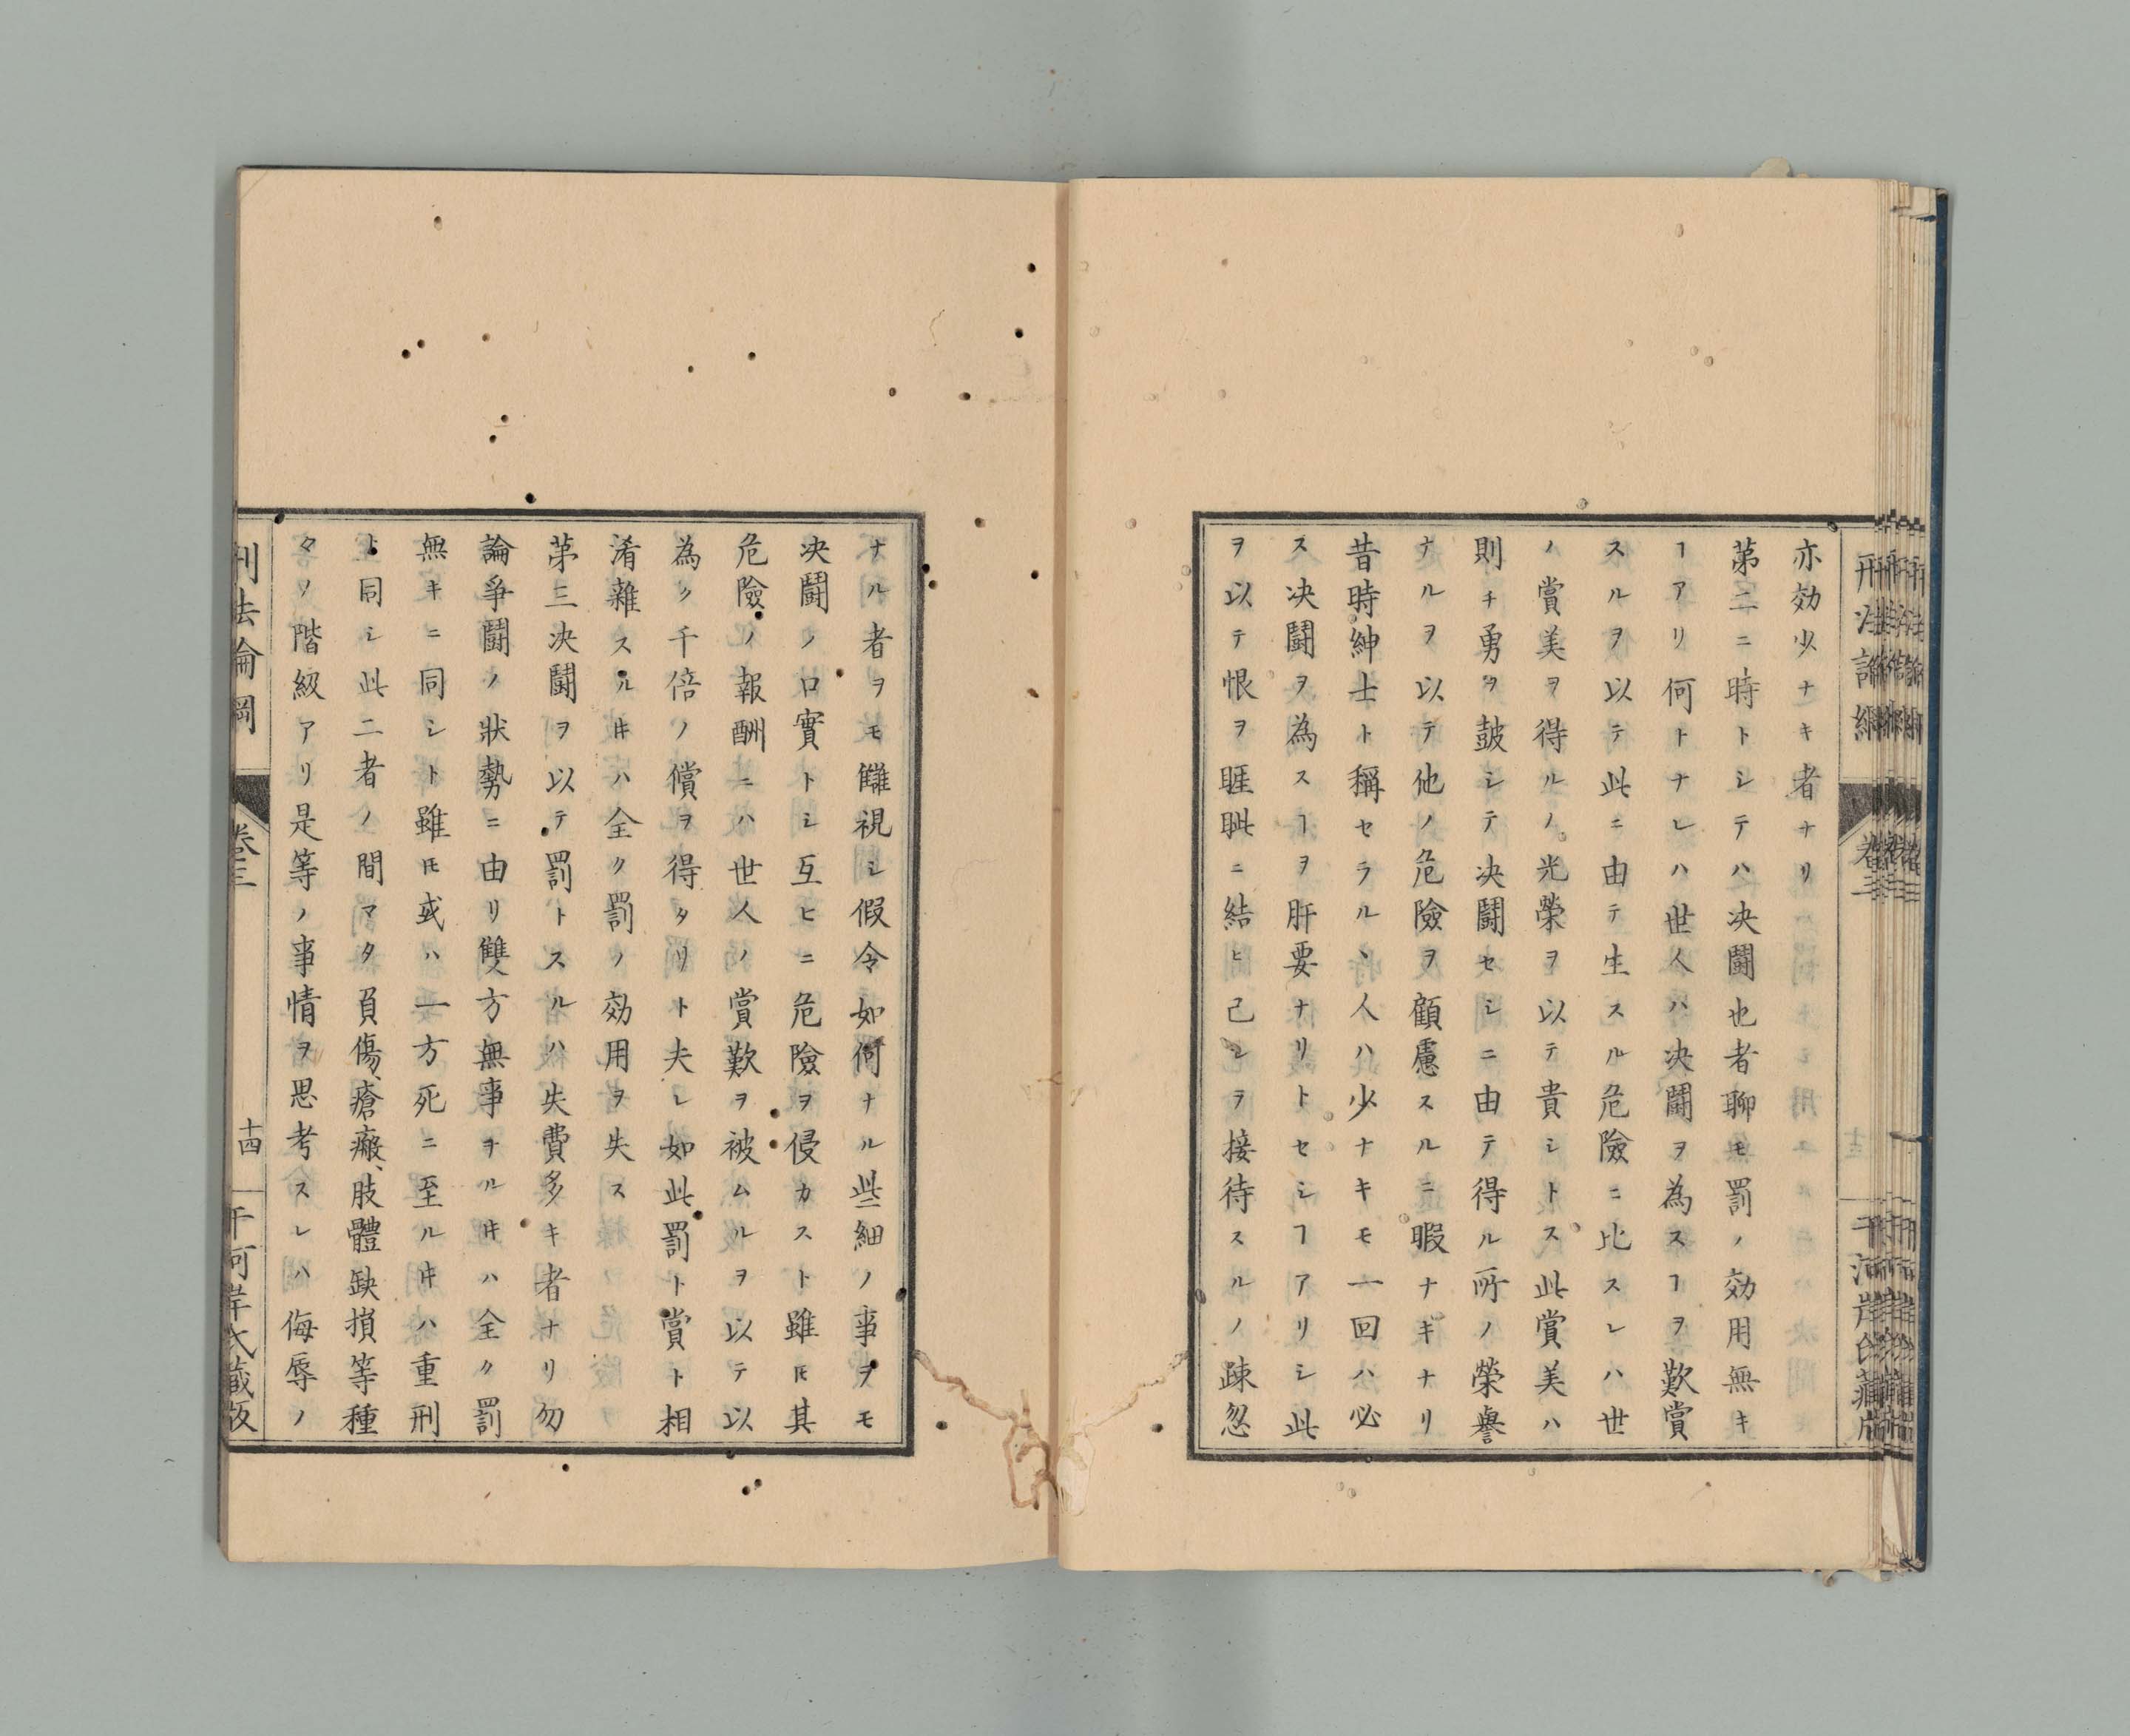 亦効少ナキ者ナリ
第二ニ時トシテハ决闘也者聊モ罰ノ効用無キ
ヿアリ何トナレハ世人ハ决闘ヲ為スヿヲ歎賞
スルヲ以テ此ニ由テ生スル危險ニ比スレハ世
ノ賞美ヲ得ルノ光榮ヲ以テ貴シトス此賞美ハ
則チ勇ヲ皷シテ决闘セシニ由テ得ル所ノ榮譽
ナルヲ以テ他ノ危險ヲ顧慮スルニ暇ナキナリ
昔時紳士ト稱セラルヽ人ハ少ナキモ一回ハ必
ス决闘ヲ為スヿヲ肝要ナリトセシヿアリシ此
ヲ以テ恨ヲ睚眦ニ結ヒ己レヲ接待スルノ疎忽
ナル者ヲモ讎視シ假令如何ナル些細ノ事ヲモ
决闘ノ口實トシ互ヒニ危險ヲ侵カスト雖𪜈其
危險ノ報酬ニハ世人ノ賞歎ヲ被ムルヲ以テ以
為ク千倍ノ償ヲ得タリト夫レ如此罰ト賞ト相
淆雜スル𪜈ハ全ク罰ノ効用ヲ失ス
第三决闘ヲ以テ罰トスルハ失費多キ者ナリ勿
論爭闘ノ狀勢ニ由リ雙方無事ヲル𪜈ハ全ク罰
無キニ同シト雖𪜈或ハ一方死ニ至ル𪜈ハ重刑
ト同シ此二者ノ間マタ負傷、瘡癥、肢體缺損等種
々ノ階級アリ是等ノ事情ヲ思考スレハ侮辱ノ
刑法論綱
卷三
十四
干河岸氏藏版